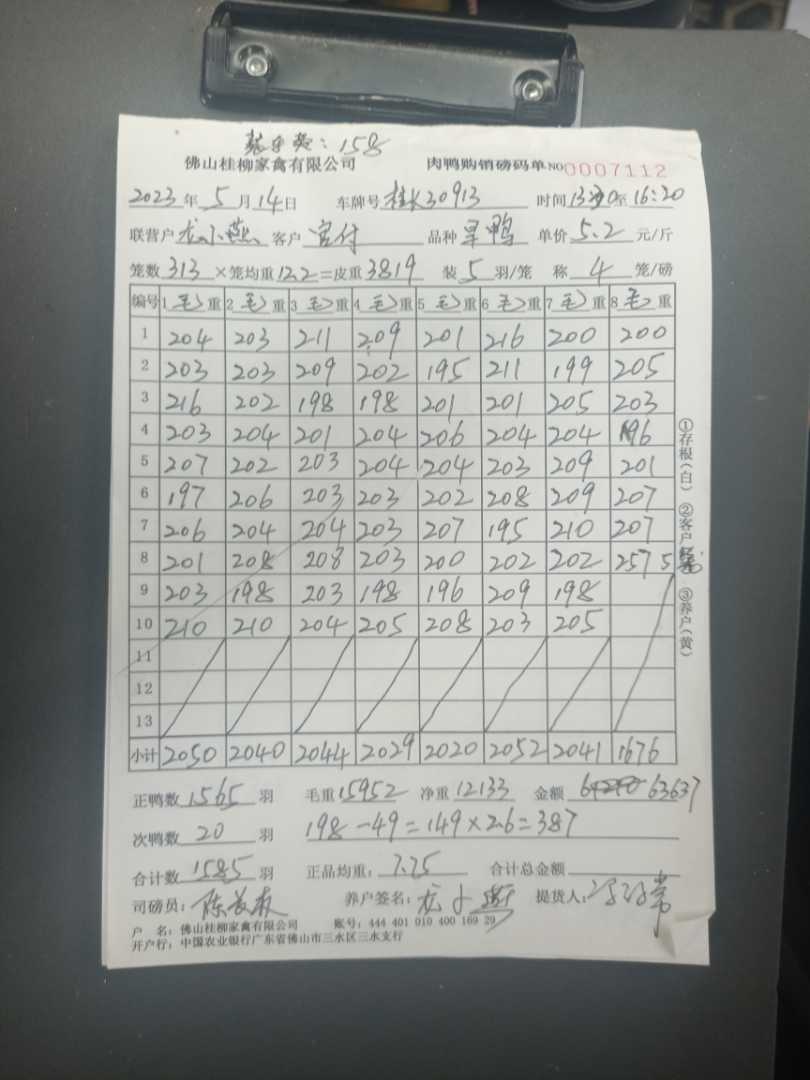 装车费：158
佛山桂柳家禽有限公司 肉鸭购销磅码单 NO 0007112
2023年5月14日 车牌号桂K30913 时间13:30至16:20
联营户龙小燕 客户宫付 品种旱鸭 单价5.2元/斤
笼数313×笼均重12.2=皮重3819 装5羽/笼 称4笼/磅
编号 1毛重 2毛重 3毛重 4毛重 5毛重 6毛重 7毛重 8毛重
1 204 203 211 209 201 216 200 200
2 203 203 209 202 195 211 199 205
3 216 202 198 198 201 201 205 203
4 203 204 201 204 206 204 204 196
5 207 202 203 204 204 203 209 201
6 197 206 203 203 202 208 209 207
7 206 204 204 203 207 195 210 207
8 201 208 208 203 200 202 202 257 5笼
9 203 198 203 198 196 209 198
10 210 210 204 205 208 203 205
11
12
13
小计 2050 2040 2044 2029 2020 2052 2041 1676
①存根(白) ②客户(红) ③养户(黄)
正鸭数1565羽 毛重15952 净重12133 金额63637
次鸭数20羽 198-49=149×2.6=387
合计数1585羽 正品均重：7.75 合计总金额
司磅员：陈 养户签名：龙小燕 提货人：
户 名：佛山桂柳家禽有限公司 账号：444 401 010 400 169 29
开户行：中国农业银行广东省佛山市三水区三水支行